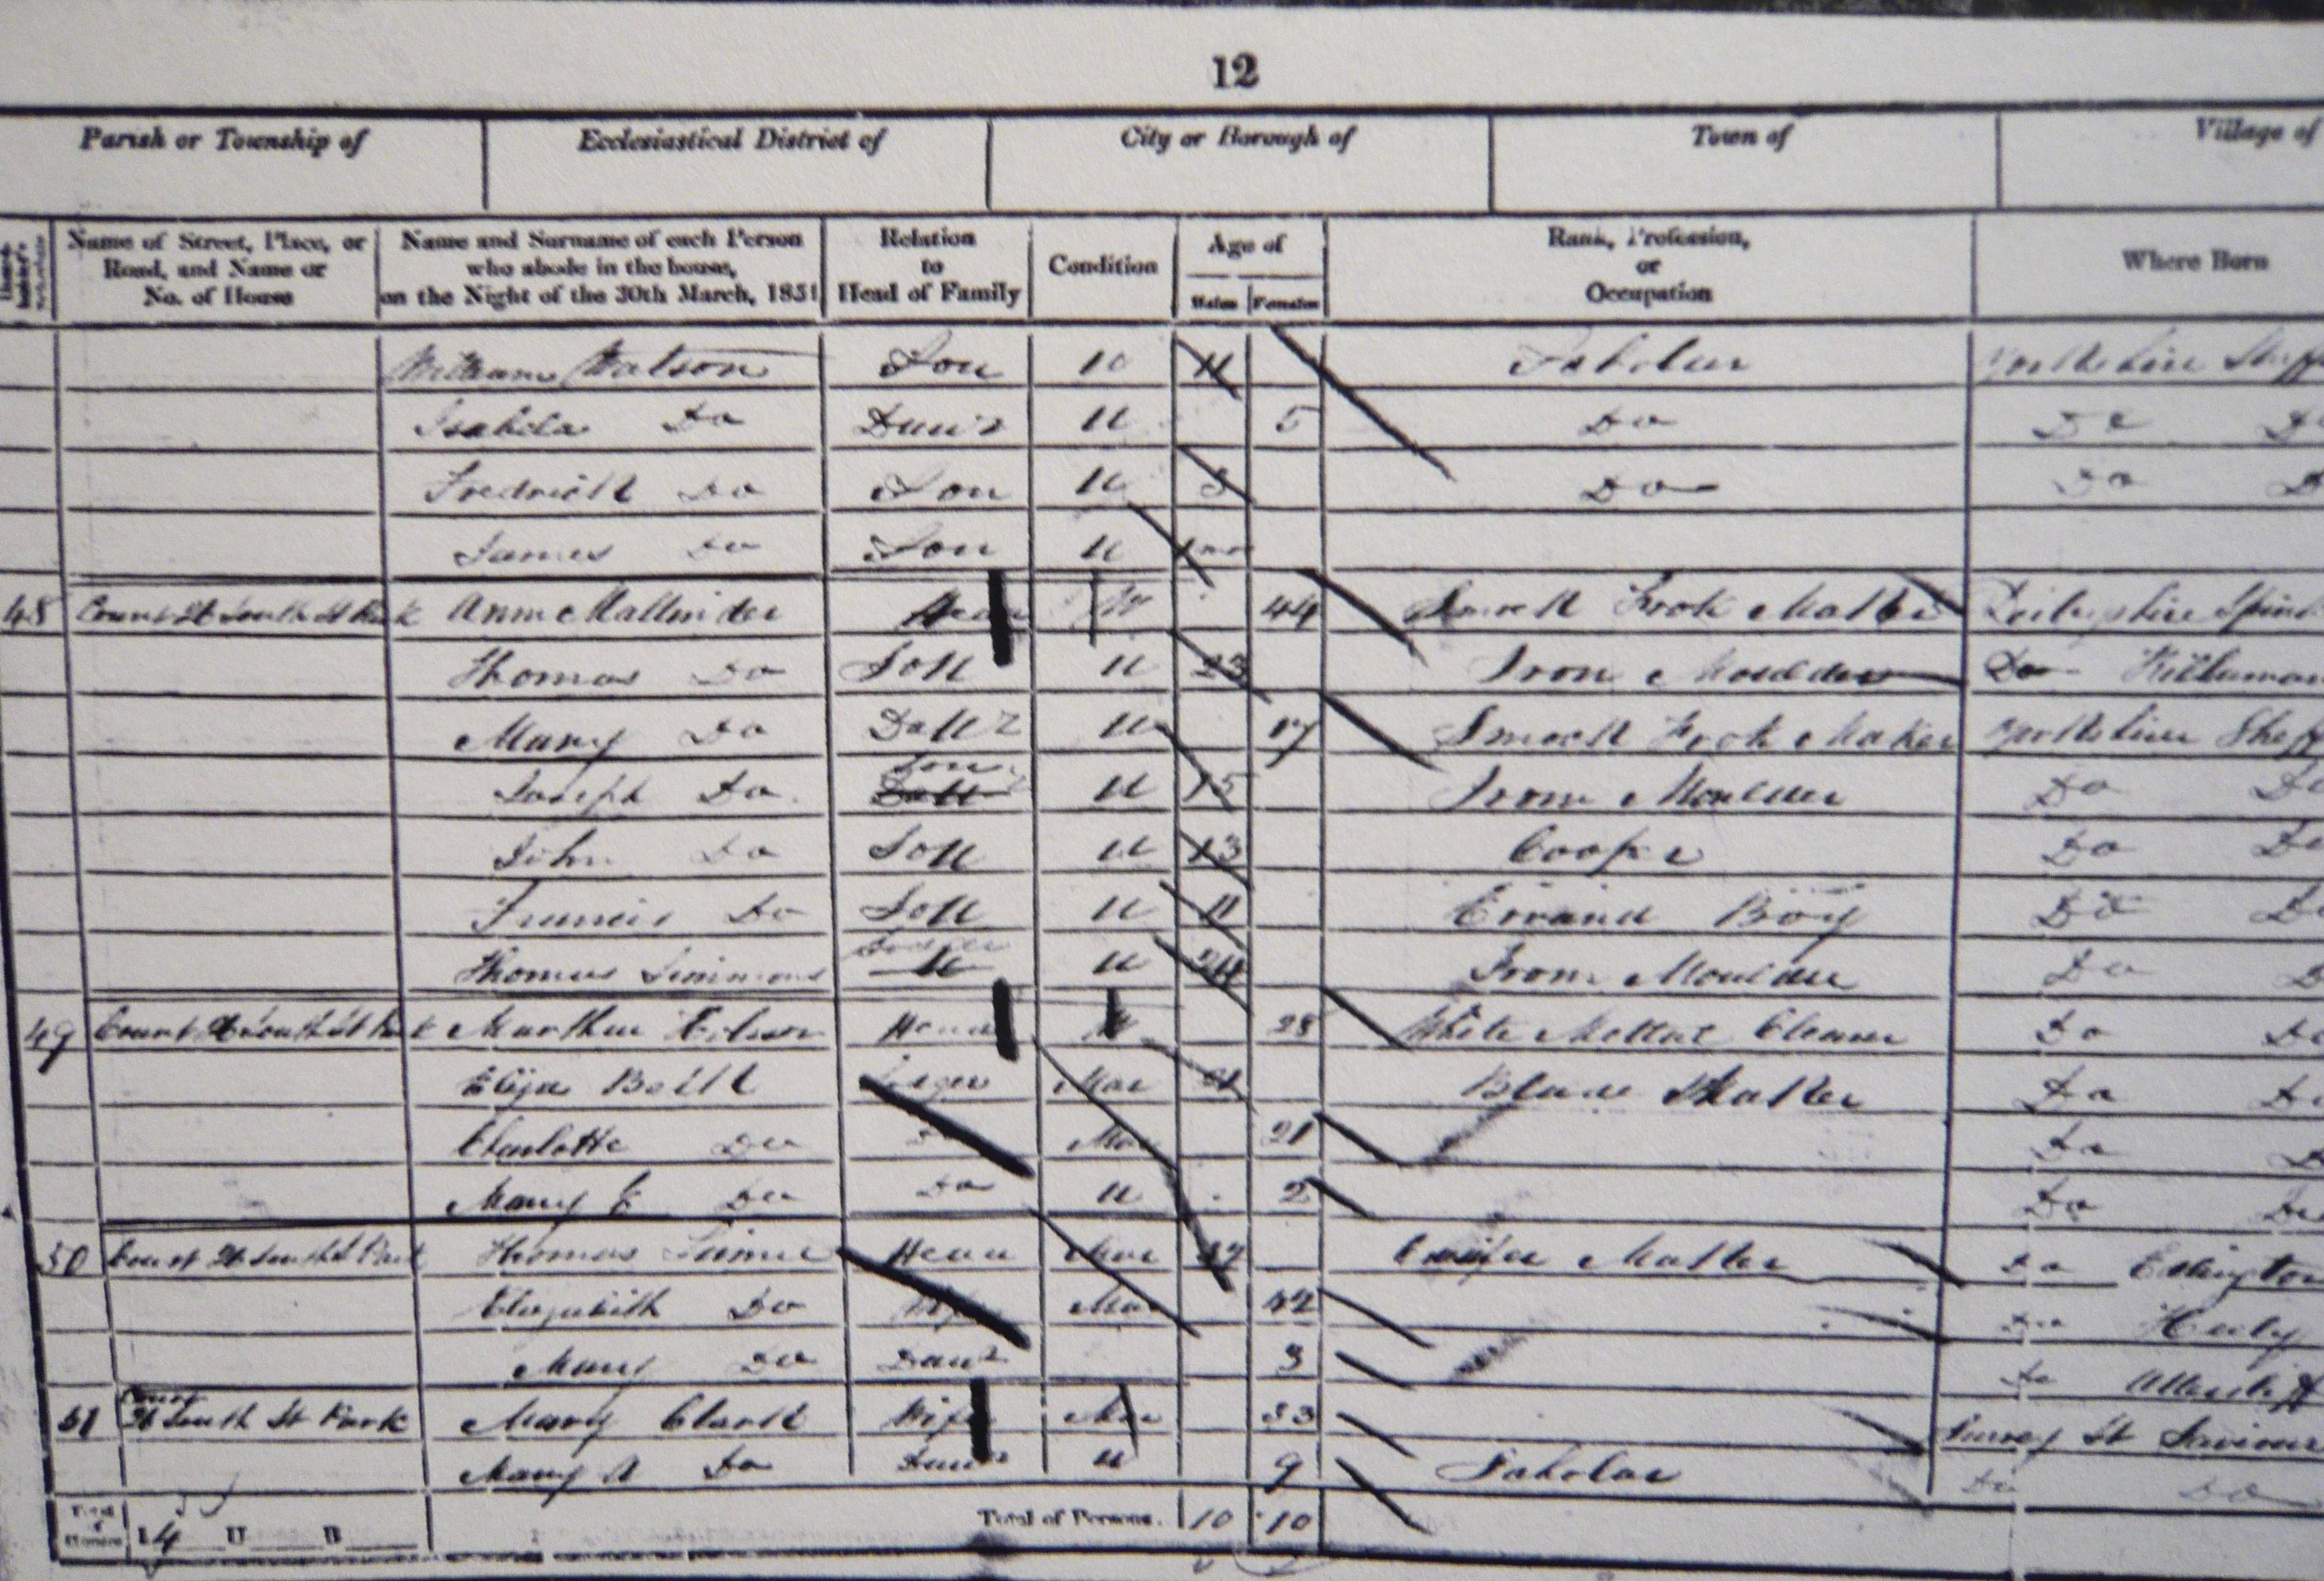 12
Parish or Township of Ecclesiastical District of City or Borough of Town of Village of
Name of Street, Place, or Road, and Name or No. of House
Name and Surname of each Person who abode in the house, on the Night of the 30th March, 1851
Relation to Head of Family
Condition
Age of
Males Females
Rank, Profession, or Occupation
Where Born
William Watson Son U 11 Scholar Yorkshire Sheff
Isabela Do U 5 Do Do D
Fredrick Do Son U 3 Do Do D
James Do Son U mo
48 Court South St Park Ann Mallinder Head W 44 Smock Frok Maker Derbyshire Spin
Thomas Do Son U 23 Iron Moulder Do Killamar
Mary Do U 17 Smock Frok Maker Yorkshire Sheff
Joseph Do Son U 15 Iron Moulder Do Do
John Do Son U 13 Cooper Do Do
Francis Do Son U 11 Errand Boy Do D
Thomas Simmons U 24 Iron Moulder Do D
49 Court South St Park Marthur Head 28 White Mettal Cleaner Do Do
Elija Mar 21 Blade Do Do
Charlotte Do Do Mar 21 Do D
Mary E Do Do U 2 Do Do
50 Court South St Park Thomas Head Mar Maker Do
Elizabeth Do Wife Mar 42 Do Heely
Mary Do 3 Do
51 Court South St Park Mary Clark Wife Mar 33 Surrey St Saviour
Mary A Do U 9 Scholar Do Do
Total of Houses 14 U B Total of Persons. 10 10